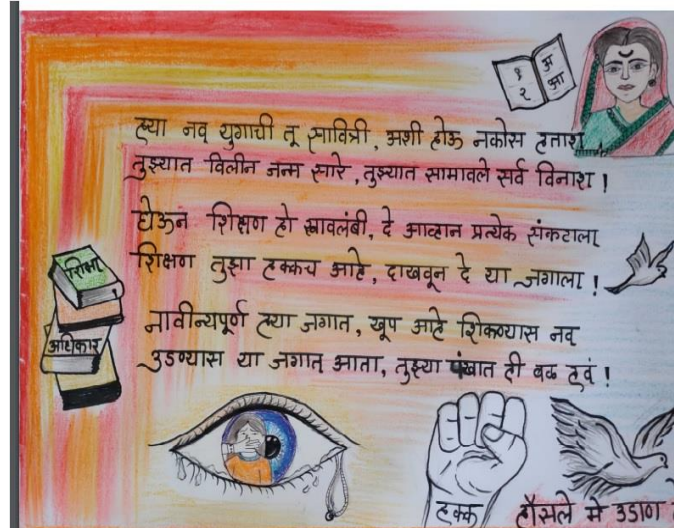 १ अ
२ आ
ह्या नव युगाची तू सावित्री, अशी होऊ नकोस हताश,
तुझ्यात विलीन जन्म सारे, तुझ्यात सामावले सर्व विनाश !
घेऊन शिक्षण हो स्वावलंबी, दे आव्हान प्रत्येक संकटाला,
शिक्षण तुझा हक्कच आहे, दाखवून दे या जगाला !
नावीन्यपूर्ण ह्या जगात, खूप आहे शिकण्यास नव
उडण्यास या जगात आता, तुझ्या पंखात ही बळ हवं !
शिक्षा
अधिकार
हक्क
हौसले मे उडाण